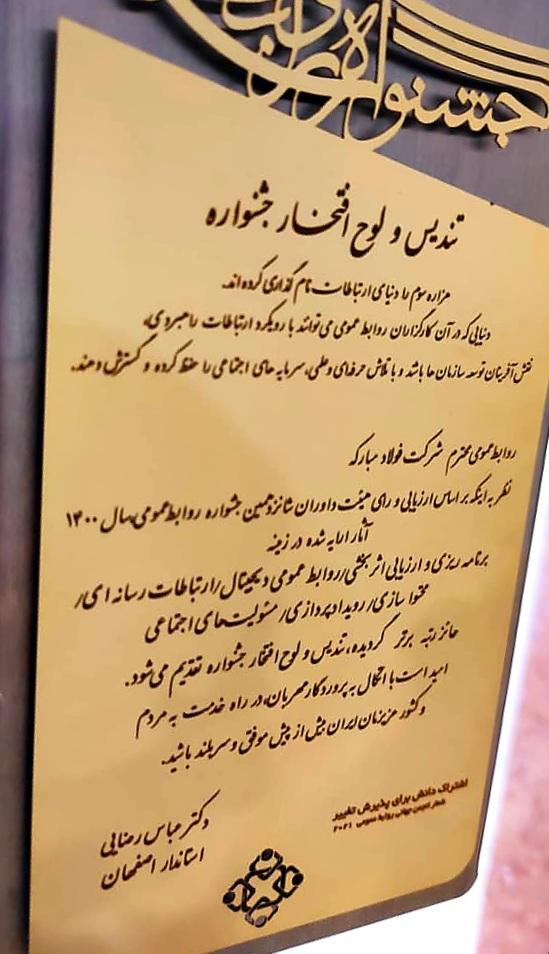 جشنواره
تندیس و لوح افتخار جشنواره
هزاره سوم را دنیای ارتباطات نام گذاری کرده‌اند.
دنیایی که در آن کارگزاران روابط عمومی می‌توانند با رویکرد ارتباطات راهبردی،
نقش آفرینان توسعه سازمان ها باشد و با تلاش حرفه‌ای و علمی، سرمایه های اجتماعی را حفظ کرده و گسترش دهند.
روابط عمومی محترم شرکت فولاد مبارکه
نظر به اینکه بر اساس ارزیابی و رای هیئت داوران شانزدهمین جشنواره روابط عمومی سال ۱۴۰۰
آثار ارایه شده در زمینه
برنامه ریزی و ارزیابی اثر بخشی/روابط عمومی دیجیتال/ارتباطات رسانه ای/
محتوا سازی/رویداد پردازی/مسئولیت‌های اجتماعی
حائز رتبه برتر گردیده، تندیس و لوح افتخار جشنواره تقدیم می‌شود.
امید است با اتکال به پروردگار مهربان، در راه خدمت به مردم
و کشور عزیزمان ایران بیش از پیش موفق و سربلند باشید.
اشتراک دانش برای پذیرش تغییر
شعار انجمن جهانی روابط عمومی ۲۰۲۱
دکتر عباس رضایی
استاندار اصفهان